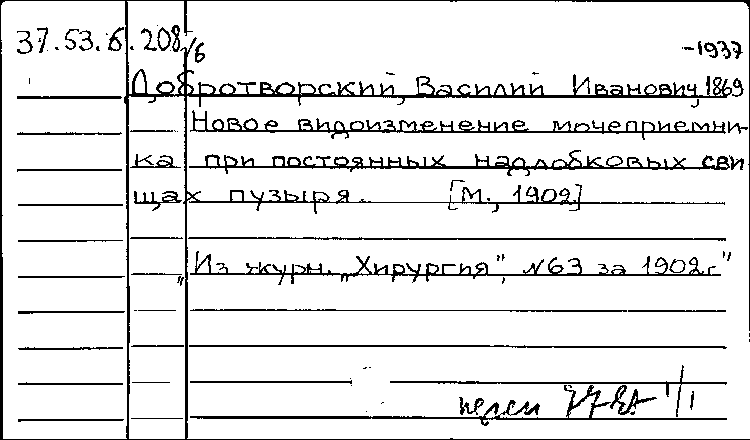 37.53.6.208/6
-1937
Добротворский, Василий Иванович, 1869
Новое видоизменение мочеприемни-
ка при постоянных надлобковых сви
щах пузыря. [М., 1902]
"Из журн. „Хирургия", №63 за 1902г."
1/1